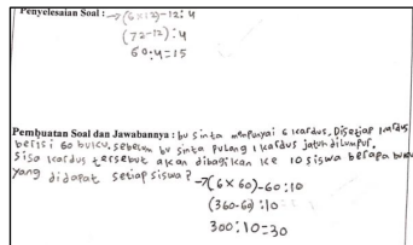 Penyelesaian Soal : → (6×12)-12:4
(72-12):4
60:4=15
Pembuatan Soal dan Jawabannya : bu Sinta mempunyai 6 kardus. Disetiap kardus
berisi 60 buku. sebelum bu sinta pulang 1 kardus jatuh dilumpur.
Sisa kardus tersebut akan dibagikan ke 10 siswa berapa buku
yang didapat setiap siswa? → (6×60)-60:10
(360-60):10
300:10=30